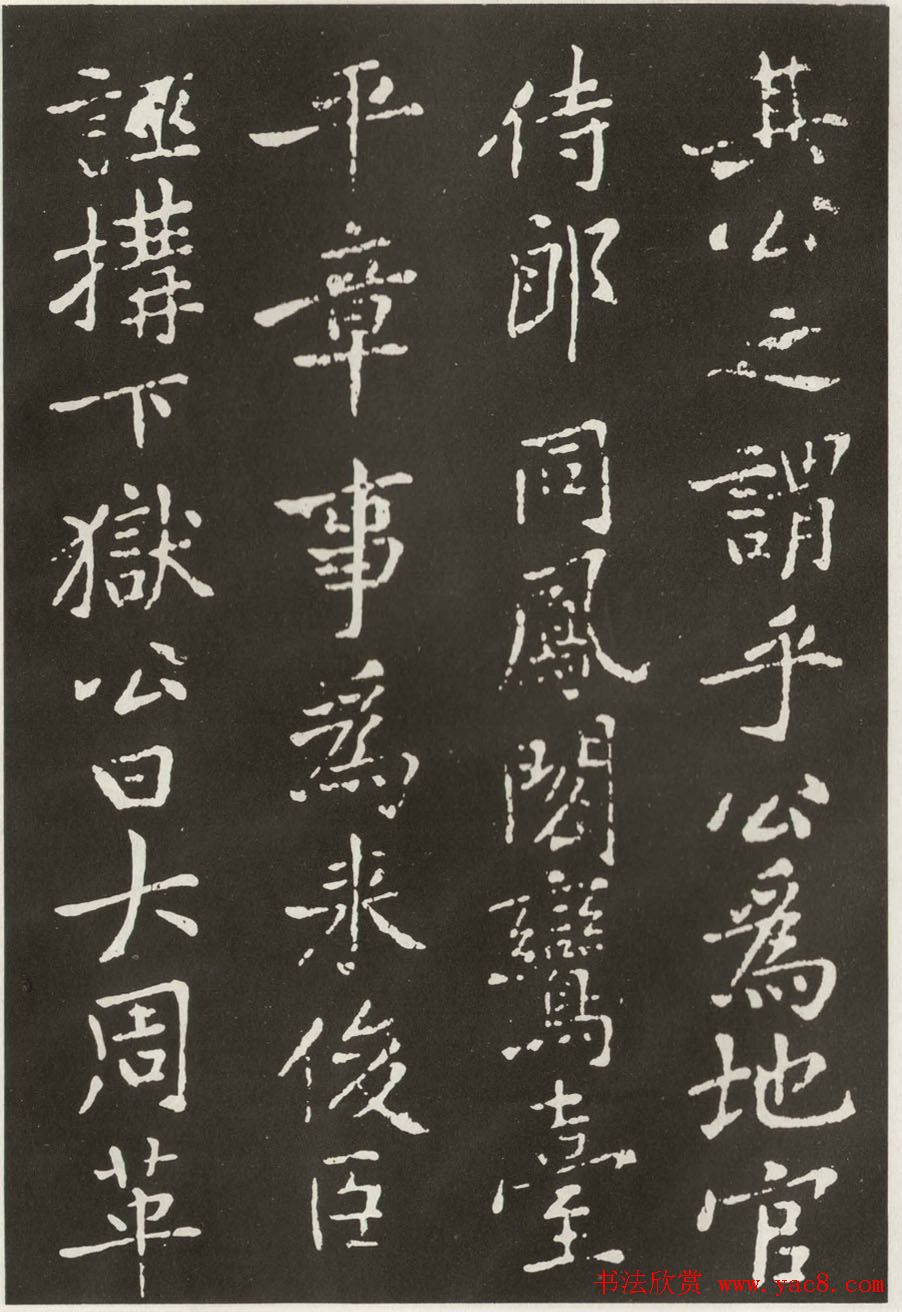 其公之謂乎公爲地官
侍郎同鳳閣鸞臺
平章事爲來俊臣
誣搆下獄公曰大周革
书法欣赏 www.yac8.com